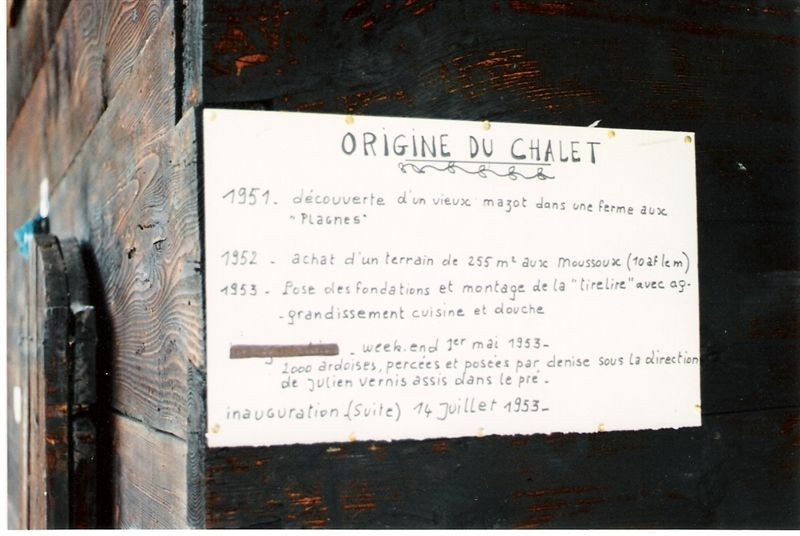 ORIGINE DU CHALET
1951. découverte d'un vieux mazot dans une ferme aux
"Plagnes"
1952 - achat d'un terrain de 255 m² aux Moussoux (10 af le m)
1953 - Pose des fondations et montage de la "tirelire" avec ag-
-grandissement cuisine et douche
- week.end 1er mai 1953-
2000 ardoises, percées et posées par denise sous la direction
de Julien vernis assis dans le pré -
inauguration (Suite) 14 Juillet 1953-